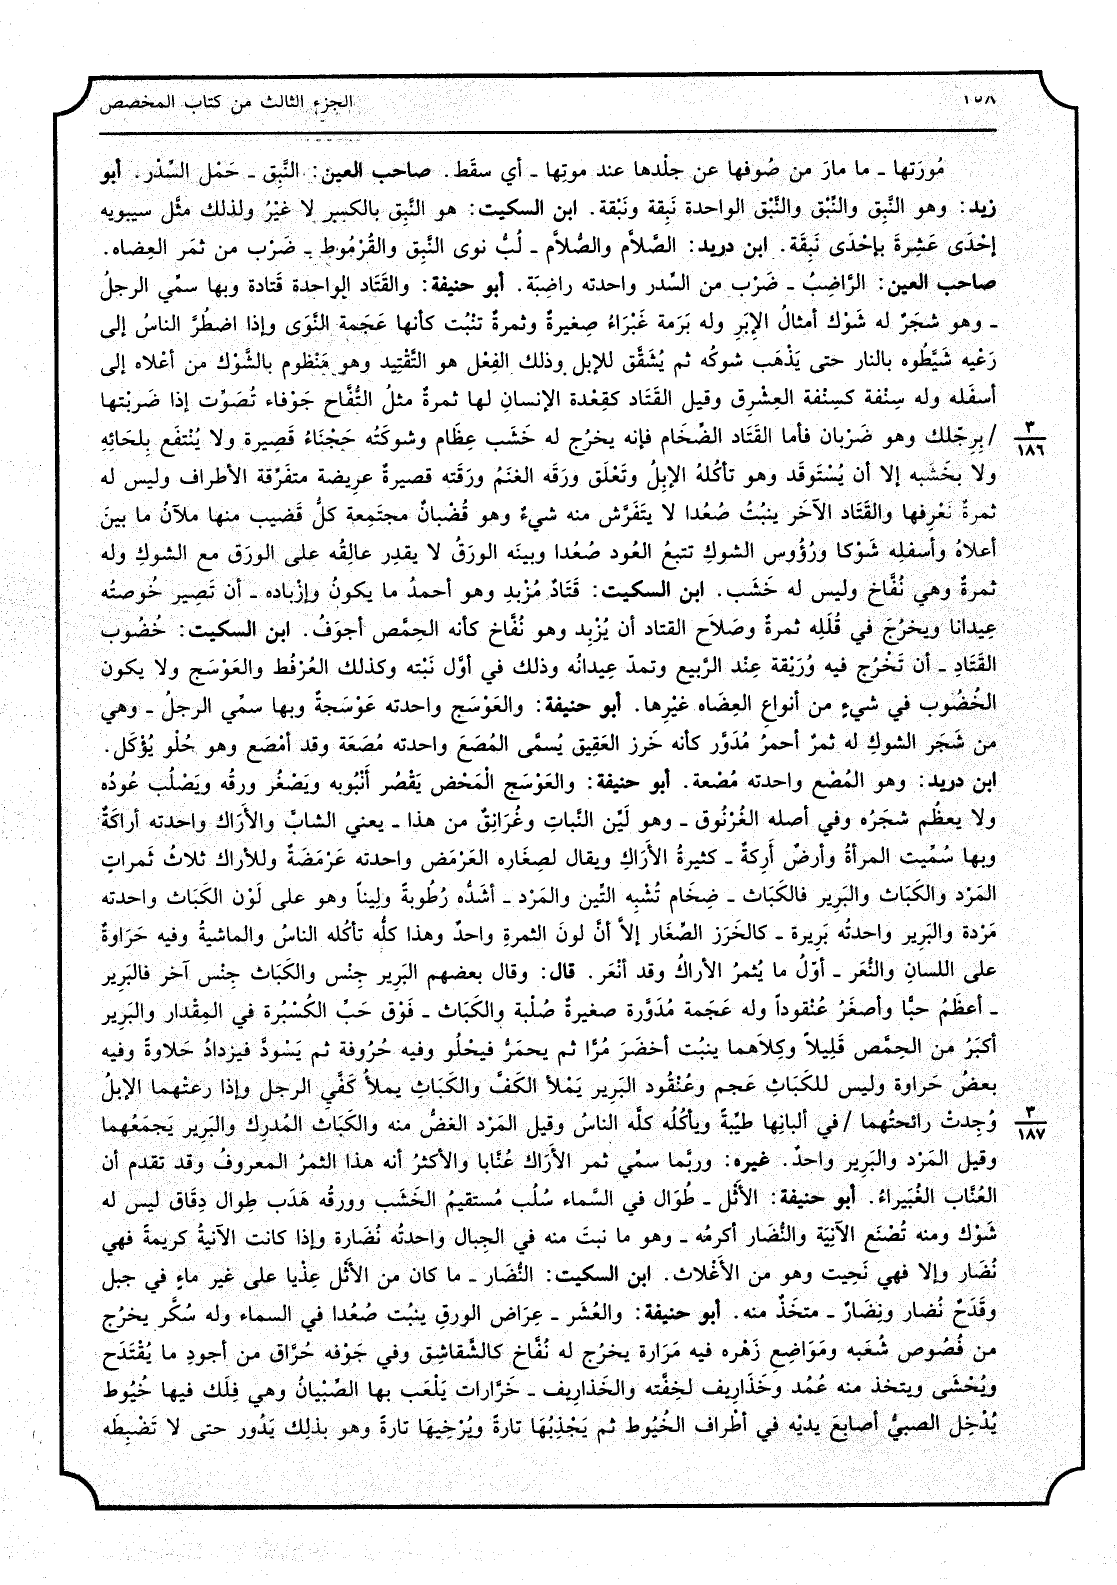 ١٥٨
الجزء الثالث من كتاب المخصص
مُورَتها ـ ما مارَ من صُوفها عن جلْدها عند موتِها ـ أي سقَط. صاحب العين: النَّبِق ـ حَمْل السِّدْر. أبو
زيد: وهو النَّبِق والنَّبْق والنِّبْق الواحدة نَبِقة ونَبْقة. ابن السكيت: هو النَّبِق بالكسر لا غيْرُ ولذلك مثَّل سيبويه
إحْدَى عَشِرةَ بإحْدَى نَبِقَة. ابن دريد: الصَّلاَّم والصُّلاَّم ـ لُبُّ نوى النَّبِق والقُرْمُوط ـ ضَرْب من ثمَر العِضاه.
صاحب العين: الرَّاضِبُ ـ ضَرْب من السِّدر واحدته راضِبَة. أبو حنيفة: والقَتَاد الواحدة قَتادة وبها سمِّي الرجلُ
ـ وهو شجَرٌ له شَوْك أمثالُ الإبَرِ وله بَرَمة غَبْرَاءُ صِغيرةٌ وثمرةٌ تنْبُت كأنها عَجَمة النَّوَى وإذا اضطُرَّ الناسُ إلى
رَعْيه شَيَّطُوه بالنار حتى يَذْهَب شوكُه ثم يُشَقَّق للإبل وذلك الفِعْل هو التَّقْتِيد وهو مَنْظوم بالشَّوْك من أعْلاه إلى
أسفَله وله سِنْفة كسِنْفة العِشْرِق وقيل القَتَاد كقِعْدة الإنسانِ لها ثمرةٌ مثلُ التُّفَّاح جَوْفاء تُصَوِّت إذا ضَرَبْتها
/ بِرِجْلك وهو ضَرْبان فأما القَتَاد الضِّخَام فإنه يخرُج له خَشَب عِظَام وشوكَتُه حَجْنَاءُ قَصِيرة ولا يُنْتفَع بِلحَائِهِ
٣
١٨٦
ولا بخَشَبه إلا أن يُسْتَوقَد وهو تأكُلهُ الإبِلُ وتَعْلَق ورَقَه الغنَمُ ورَقَته قصيرةٌ عرِيضة متفَرِّقة الأطراف وليس له
ثمرةٌ نَعْرِفها والقَتَاد الآخَر ينبُتُ صُعُدا لا يتَفَرَّش منه شيءٌ وهو قُضْبانٌ مجتمِعة كلُّ قَضيب منها ملآنُ ما بينَ
أعلاهُ وأسفلِه شَوْكا ورُؤُوس الشوكِ تتبعُ العُود صُعُدا وبينَه الورَقُ لا يقدِر عالِقُه على الورَق مع الشوكِ وله
ثمرةٌ وهي نُفَّاخ وليس له خَشَب. ابن السكيت: قَتَادٌ مُزْبِد وهو أحمدُ ما يكونُ وإزْباده ـ أن تَصِير خُوصتُه
عِيدانا ويخرُجَ في قُلَلِه ثمرةٌ وصَلاَح القتاد أن يُزْبِد وهو نُفَّاخ كأنه الحِمَّص أجوَفُ. ابن السكيت: خُضُوب
القَتَادِ ـ أن تَخْرُج فيه وُرَيْقة عِنْد الرَّبيع وتمدّ عِيدانُه وذلك في أوَّل نَبْته وكذلك العُرْفُط والعَوْسَج ولا يكون
الخُضُوب في شيءٍ من أنواعِ العِضَاه غيْرِها. أبو حنيفة: والعَوْسَج واحدته عَوْسَجةٌ وبها سمِّي الرجلُ ـ وهي
من شَجَر الشوكِ له ثمرٌ أحمرُ مُدَوَّر كأنه خَرز العَقِيق يُسمَّى المُصَعَ واحدته مُصَعَة وقد أمْصَع وهو حُلْو يُؤْكَل.
ابن دريد: وهو المُصْع واحدته مُصْعة. أبو حنيفة: والعَوْسَج الْمَحْض يَقْصُر أنْبُوبه ويَصْغُر ورقُه ويَصْلُب عُودُه
ولا يعظُم شجَرُه وفي أصله الغُرْنُوق ـ وهو لَيِّن النَّباتِ وغُرَانِقٌ من هذا ـ يعني الشابَّ والأَرَاك واحدته أراكَةٌ
وبها سُمِّيت المرأةُ وأرضٌ أَرِكةٌ ـ كثيرةُ الأَرَاكِ ويقال لصِغَاره العَرْمَض واحدته عَرْمَضَةٌ وللأراك ثلاثُ ثَمراتٍ
المَرْد والكَبَاث والبَرِير فالكَبَاث ـ ضِخَام تُشْبِه التِّين والمَرْد ـ أشَدُّه رُطُوبةً ولِيناً وهو على لَوْن الكَبَاث واحدته
مَرْدة والبَرِير واحدتُه بَرِيرة ـ كالخَرَز الصِّغَار إلاَّ أنَّ لونَ الثمرةِ واحدٌ وهذا كلُّه تأكُله الناسُ والماشيةُ وفيه حَرَاوةٌ
على اللسانِ والنُّعَر ـ أوّلُ ما يُثمرُ الأراكُ وقد أنْعَر. قال: وقال بعضهم البَرِير جِنْس والكَبَاث جِنْس آخر فالبَرِير
ـ أعظَمُ حبًّا وأصغَرُ عُنْقوداً وله عَجَمة مُدَوَّرة صغيرةٌ صُلْبة والكَبَاث ـ فَوْق حَبِّ الكُسْبُرة في المِقْدار والبَرِير
أكبَرُ من الحِمَّص قَلِيلاً وكِلاَهما ينبُت أخضَرَ مُرًّا ثم يحمَرُّ فيحْلُو وفيه حُرُوفة ثم يَسْودّ فيزدادُ حَلاوةً وفيه
بعضُ حَراوة وليس للكَبَاثِ عَجم وعُنْقود البَرِير يَمْلأ الكَفَّ والكَبَاثِ يملأُ كَفَّيِ الرجل وإذا رعتْهما الإبلُ
وُجِدتْ رائحتُهما / في ألبانِها طيِّبةً ويأكُلُه كلَّه الناسُ وقيل المَرْد الغضُّ منه والكَبَاث المُدرِك والبَرِير يَجمَعُهما
٣
١٨٧
وقيل المَرْد والبَرِير واحدٌ. غيره: وربَّما سمِّي ثمر الأَرَاك عُنَّابا والأكثرُ أنه هذا الثمرُ المعروفُ وقد تقدم أن
العُنَّاب الغُبَيراءُ. أبو حنيفة: الأَثْل ـ طُوَال في السَّماء سُلُب مُستقيمُ الخَشَب وورقُه هَدَب طِوال دِقَاق ليس له
شَوْك ومنه تُصْنَع الآنِيَة والنُّضَار أكرمُه ـ وهو ما نبتَ منه في الجِبال واحدتُه نُضَارة وإذا كانت الآنيةُ كريمةً فهي
نُضَار وإلا فهي نَحِيت وهو من الأَغْلاث. ابن السكيت: النُّضَار ـ ما كان من الأَثْل عِذْيا على غير ماءٍ في جبل
وقَدَحٌ نُضار ونِضَارٌ ـ متخَذٌ منه. أبو حنيفة: والعُشَر ـ عِرَاض الورقِ ينبُت صُعُدا في السماء وله سُكَّر يخرُج
من فُصُوص شُعَبه ومَوَاضِع زَهْره فيه مَرَارة يخرُج له نُفَّاخ كالشَّقاشِق وفي جَوْفه حُرَّاق من أجودِ ما يُقْتَدَح
ويُحْشَى ويتخذ منه عُمُد وخَذَاريف لخِفَّته والخَذارِيف ـ خَرَّارات يَلْعَب بها الصِّبْيانُ وهي فِلَك فيها خُيُوط
يُدْخِل الصبيُّ أصابعَ يديْه في أطْراف الخُيُوط ثم يَجْذِبُها تارةً ويُرْخِيها تارةً وهو بذلِك يَدُور حتى لا تَضْبِطَه